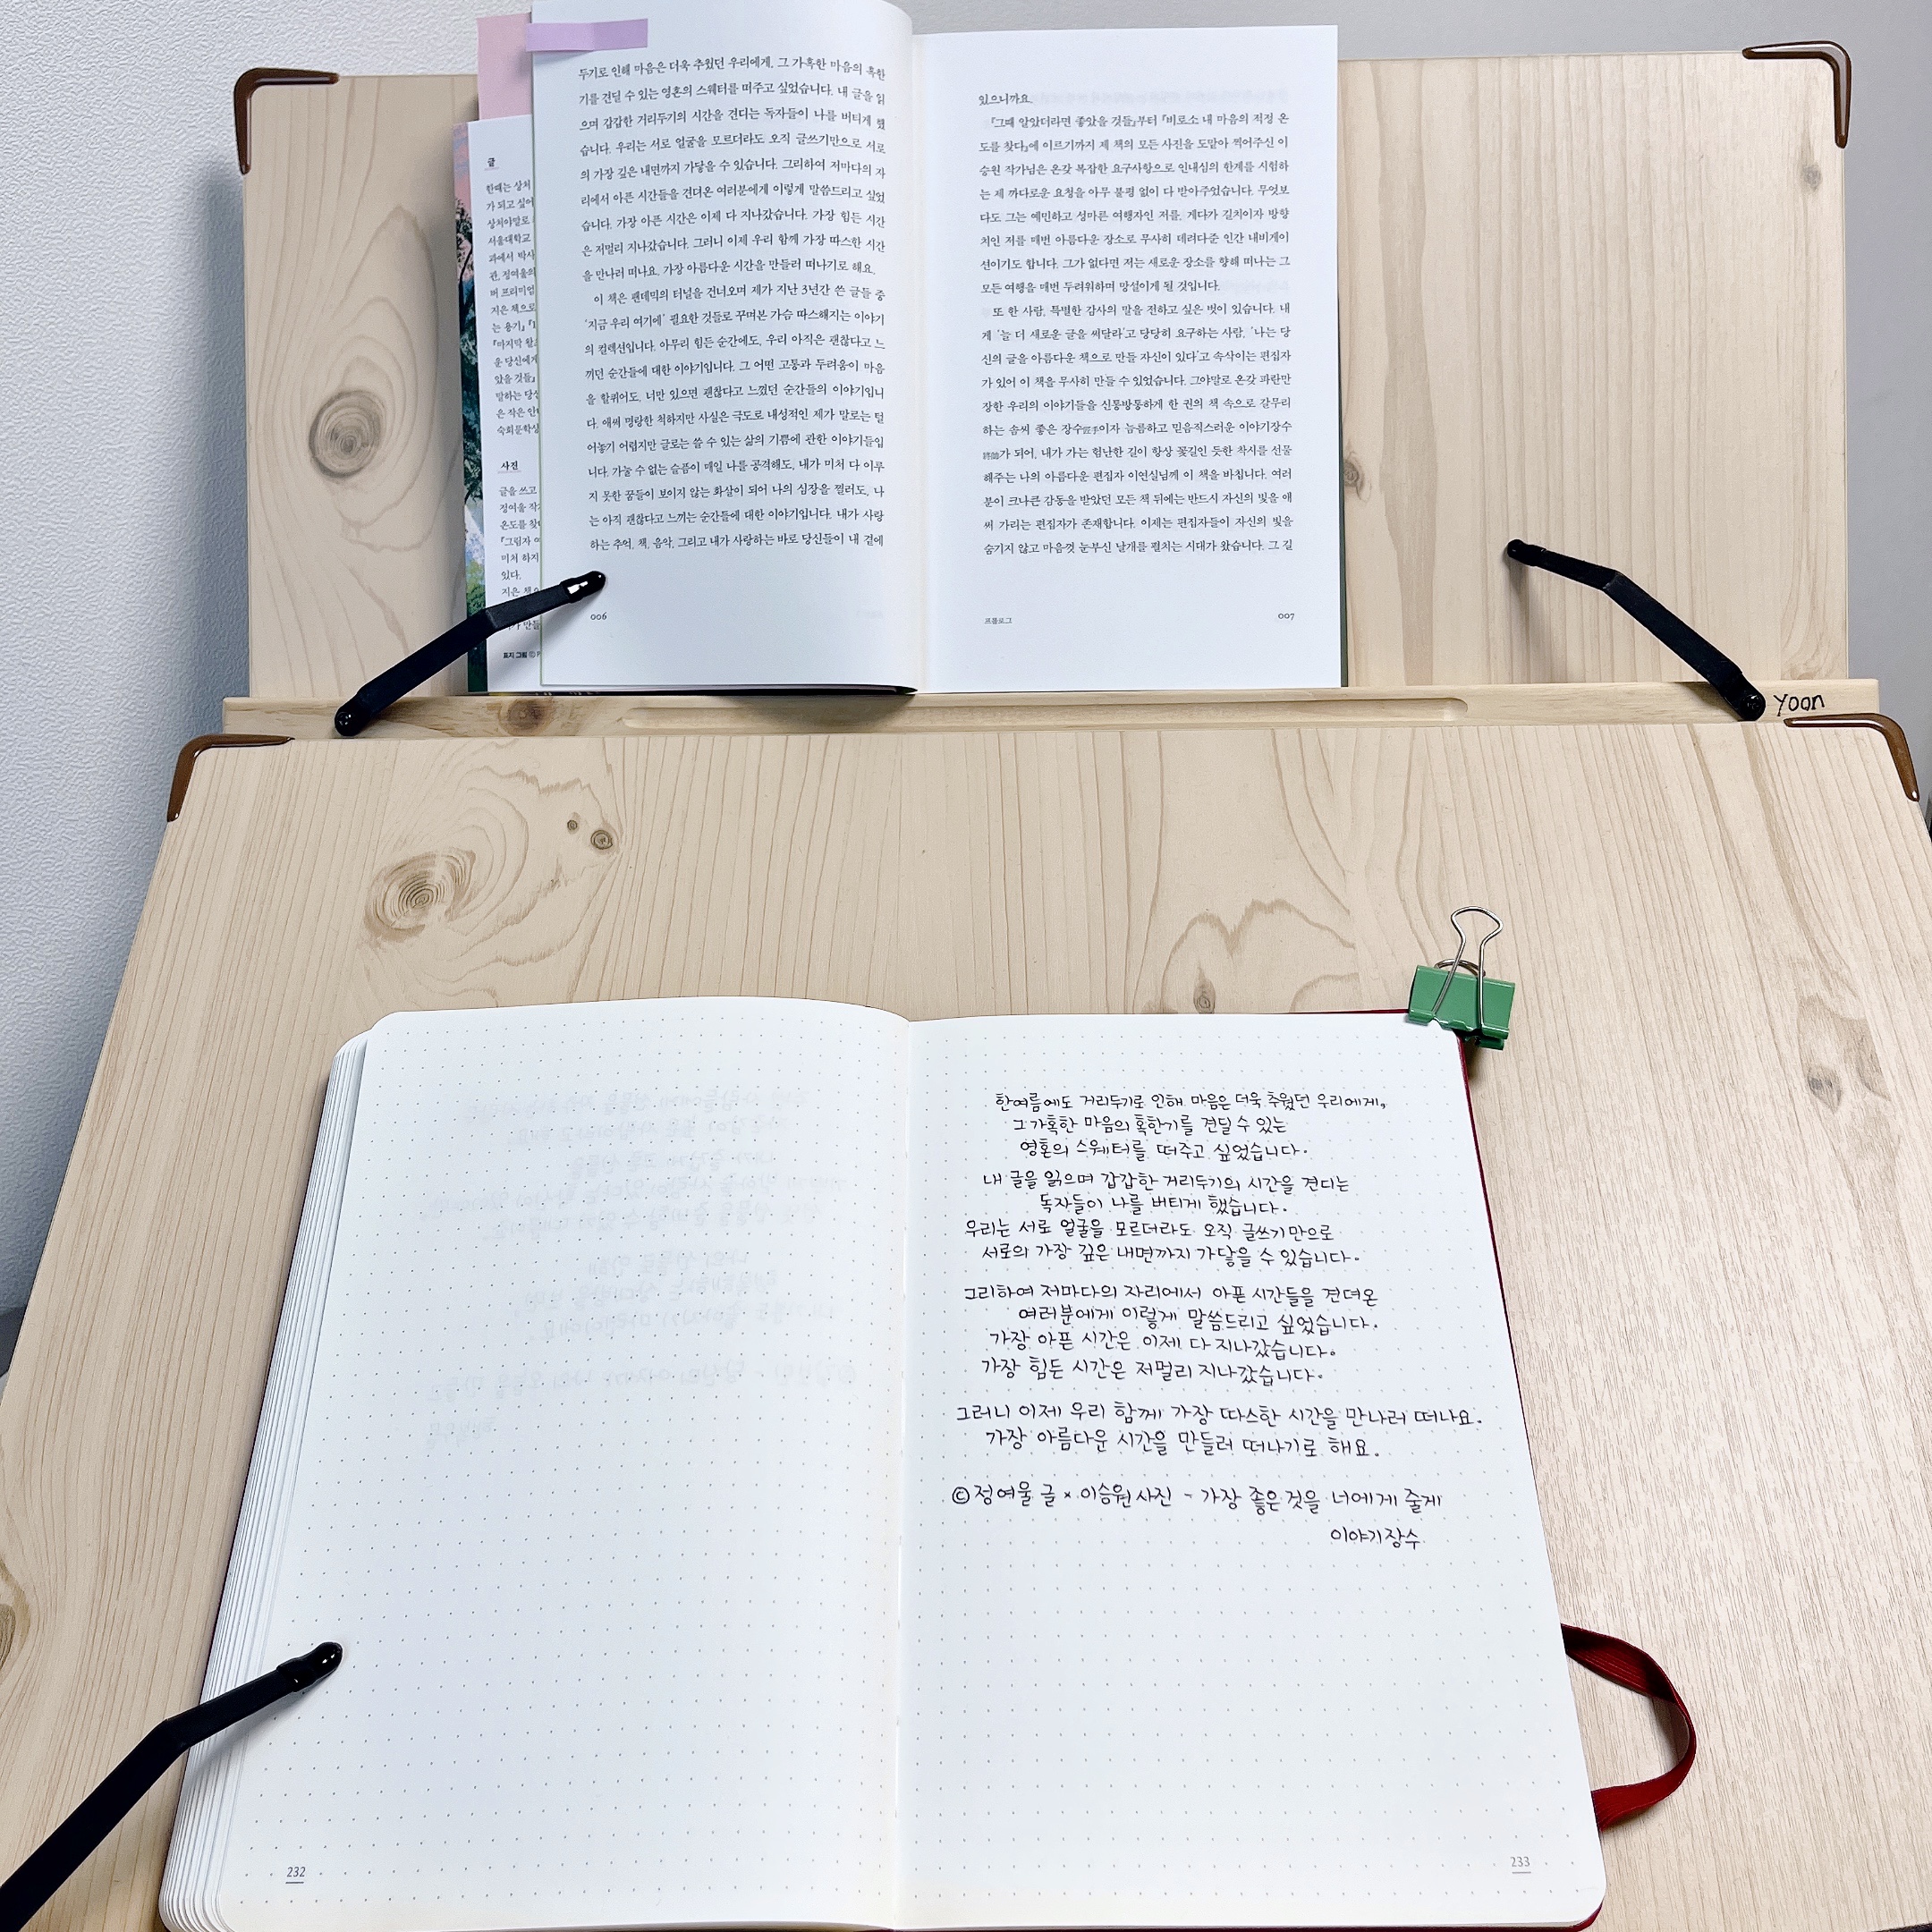 두기로 인해 마음은 더욱 추웠던 우리에게, 그 가혹한 마음의 혹한
기를 견딜 수 있는 영혼의 스웨터를 떠주고 싶었습니다. 내 글을 읽
으며 갑갑한 거리두기의 시간을 견디는 독자들이 나를 버티게 했
습니다. 우리는 서로 얼굴을 모르더라도 오직 글쓰기만으로 서로
의 가장 깊은 내면까지 가닿을 수 있습니다. 그리하여 저마다의 자
리에서 아픈 시간들을 견뎌온 여러분에게 이렇게 말씀드리고 싶었
습니다. 가장 아픈 시간은 이제 다 지나갔습니다. 가장 힘든 시간
은 저멀리 지나갔습니다. 그러니 이제 우리 함께 가장 따스한 시간
을 만나러 떠나요. 가장 아름다운 시간을 만들러 떠나기로 해요.
이 책은 팬데믹의 터널을 건너오며 제가 지난 3년간 쓴 글들 중
'지금 우리 여기에' 필요한 것들로 꾸며본 가슴 따스해지는 이야기
의 컬렉션입니다. 아무리 힘든 순간에도, 우리 아직은 괜찮다고 느
끼던 순간들에 대한 이야기입니다. 그 어떤 고통과 두려움이 마음
을 할퀴어도, 너만 있으면 괜찮다고 느꼈던 순간들의 이야기입니
다. 애써 명랑한 척하지만 사실은 극도로 내성적인 제가 말로는 털
어놓기 어렵지만 글로는 쓸 수 있는 삶의 기쁨에 관한 이야기들입
니다. 가눌 수 없는 슬픔이 매일 나를 공격해도, 내가 미처 다 이루
지 못한 꿈들이 보이지 않는 화살이 되어 나의 심장을 찔러도, 나
는 아직 괜찮다고 느끼는 순간들에 대한 이야기입니다. 내가 사랑
하는 추억, 책, 음악, 그리고 내가 사랑하는 바로 당신들이 내 곁에
006
있으니까요.
『그때 알았더라면 좋았을 것들』부터 『비로소 내 마음의 적정 온
도를 찾다』에 이르기까지 제 책의 모든 사진을 도맡아 찍어주신 이
승원 작가님은 온갖 복잡한 요구사항으로 인내심의 한계를 시험하
는 제 까다로운 요청을 아무 불평 없이 다 받아주었습니다. 무엇보
다도 그는 예민하고 성마른 여행자인 저를, 게다가 길치이자 방향
치인 저를 매번 아름다운 장소로 무사히 데려다준 인간 내비게이
션이기도 합니다. 그가 없다면 저는 새로운 장소를 향해 떠나는 그
모든 여행을 매번 두려워하며 망설이게 될 것입니다.
또 한 사람, 특별한 감사의 말을 전하고 싶은 벗이 있습니다. 내
게 '늘 더 새로운 글을 써달라'고 당당히 요구하는 사람, '나는 당
신의 글을 아름다운 책으로 만들 자신이 있다'고 속삭이는 편집자
가 있어 이 책을 무사히 만들 수 있었습니다. 그야말로 온갖 파란만
장한 우리의 이야기들을 신통방통하게 한 권의 책 속으로 갈무리
하는 솜씨 좋은 장수이자 늠름하고 믿음직스러운 이야기장수
가 되어, 내가 가는 험난한 길이 항상 꽃길인 듯한 착시를 선물
해주는 나의 아름다운 편집자 이연실님께 이 책을 바칩니다. 여러
분이 크나큰 감동을 받았던 모든 책 뒤에는 반드시 자신의 빛을 애
써 가리는 편집자가 존재합니다. 이제는 편집자들이 자신의 빛을
숨기지 않고 마음껏 눈부신 날개를 펼치는 시대가 왔습니다. 그 길
프롤로그
007
글
한때는 상처
가 되고 싶어
상처야말로
서울대학교
과에서 박사
관, 정여울의
버 프리미엄
지은 책으로
는 용기』
『마지막 왈
운 당신에게
았을 것들』
말하는 당신
은 작은 안
숙회문학상
사진
글을 쓰고
정여울 작
온도를 찾
『그림자 여
미처 하지
있다.
지은 책
표지 그림 ©
yoon
한여름에도 거리두기로 인해 마음은 더욱 추웠던 우리에게,
그 가혹한 마음의 혹한기를 견딜 수 있는
영혼의 스웨터를 떠주고 싶었습니다.
내 글을 읽으며 갑갑한 거리두기의 시간을 견디는
독자들이 나를 버티게 했습니다.
우리는 서로 얼굴을 모르더라도 오직 글쓰기만으로
서로의 가장 깊은 내면까지 가닿을 수 있습니다.
그리하여 저마다의 자리에서 아픈 시간들을 견뎌온
여러분에게 이렇게 말씀드리고 싶었습니다.
가장 아픈 시간은 이제 다 지나갔습니다.
가장 힘든 시간은 저멀리 지나갔습니다.
그러니 이제 우리 함께 가장 따스한 시간을 만나러 떠나요.
가장 아름다운 시간을 만들러 떠나기로 해요.
©정여울 글 × 이승원 사진 - 가장 좋은 것을 너에게 줄게
이야기장수
232
233